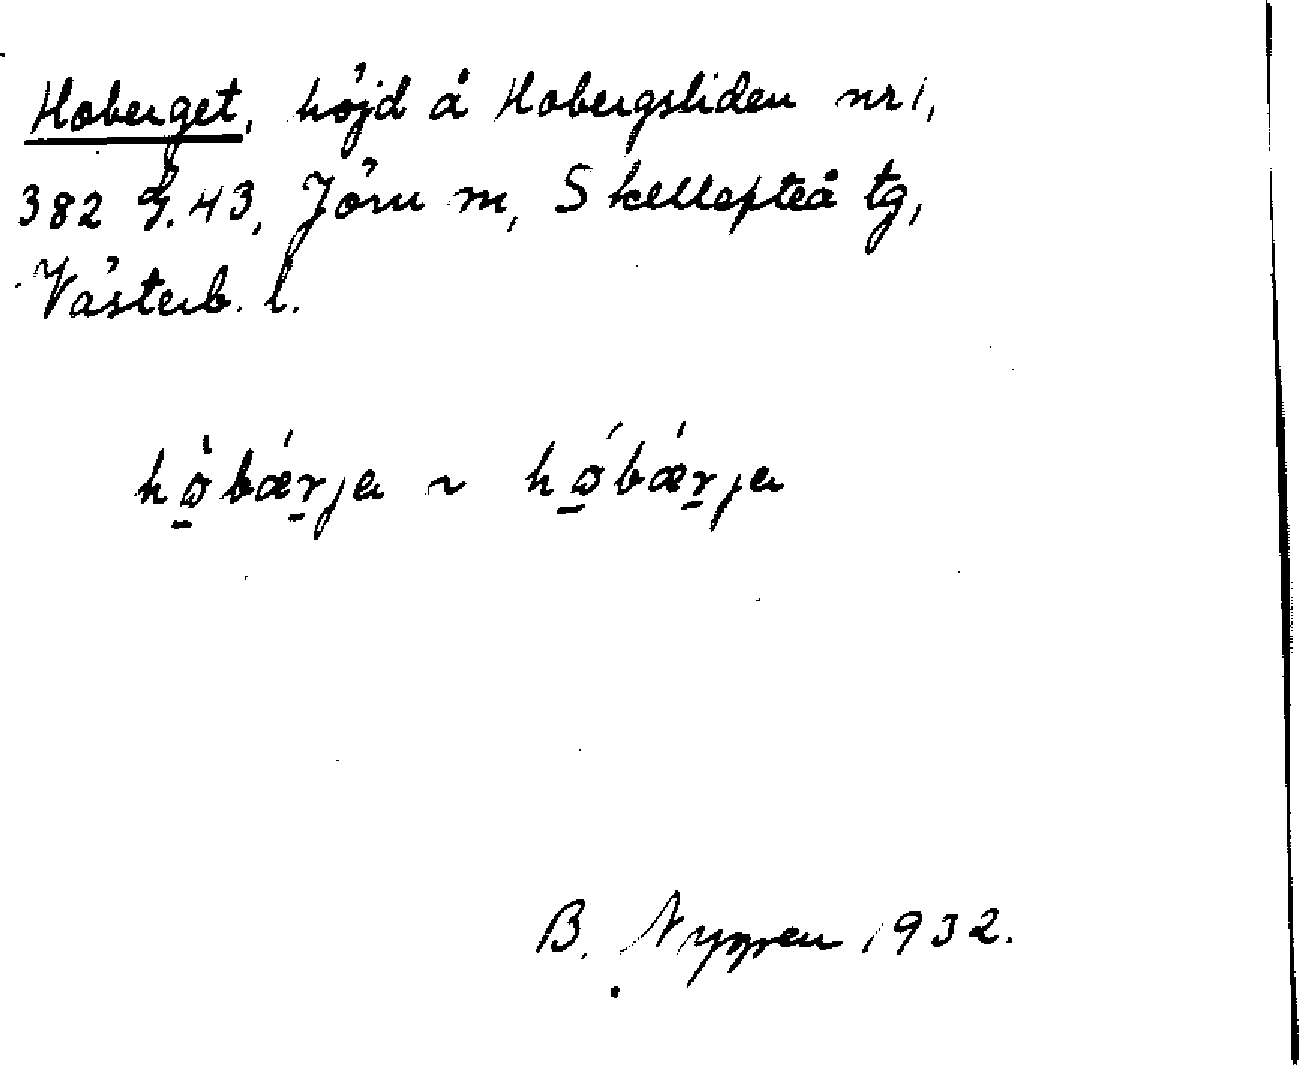 Hoberget, höjd å Hobergsliden nr 1,
382 G.43, Jörn m, Skellefteå tg,
Västerb. l.
hø̠̀bǽr̠ja ~ hǿ̠bǽr̠ja
B. Nygren 1932.